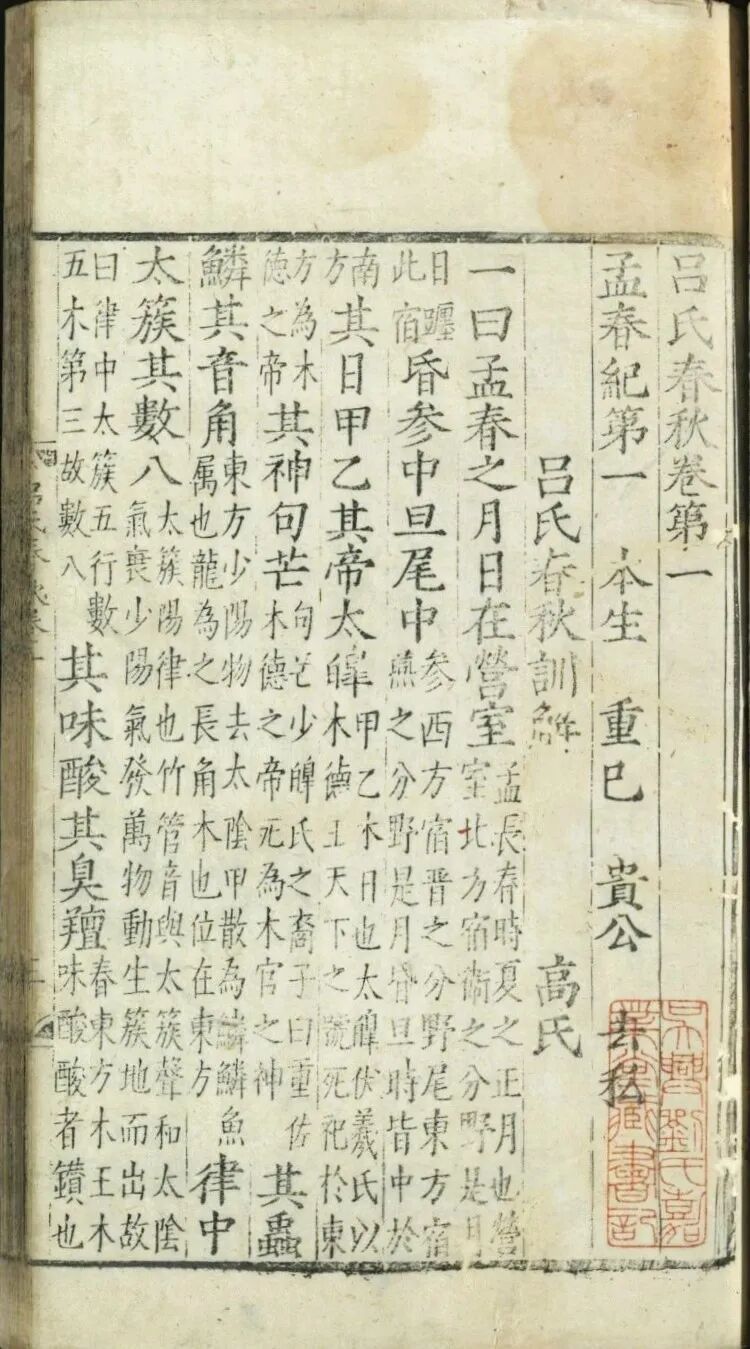 呂氏春秋卷第一
孟春紀第一 本生 重巳 貴公 去私
呂氏春秋訓觧 高氏
一曰孟春之月日在營室孟長春時夏之正月也營室北方宿衛之分野是月
日躔此宿昏參中旦尾中參西方宿晉之分野尾東方宿燕之分野是月昏旦時皆中於
南方其日甲乙其帝太皡甲乙木日也太皡伏羲氏以木德王天下之號死祀於東
方為木德之帝其神句芒句芒少皡氏之裔子曰重佐木德之帝死為木官之神其蟲
鱗其音角東方少陽物去太陰甲散為鱗鱗魚属也龍為之長角木也位在東方律中
太簇其數八太簇陽律也竹管音與太簇聲和太陰氣衰少陽氣發萬物動生簇地而出故
曰律中太簇五行數五木第三故數八其味酸其臭羶春東方木王木味酸酸者鑚也
吳興劉氏嘉
業堂藏書記